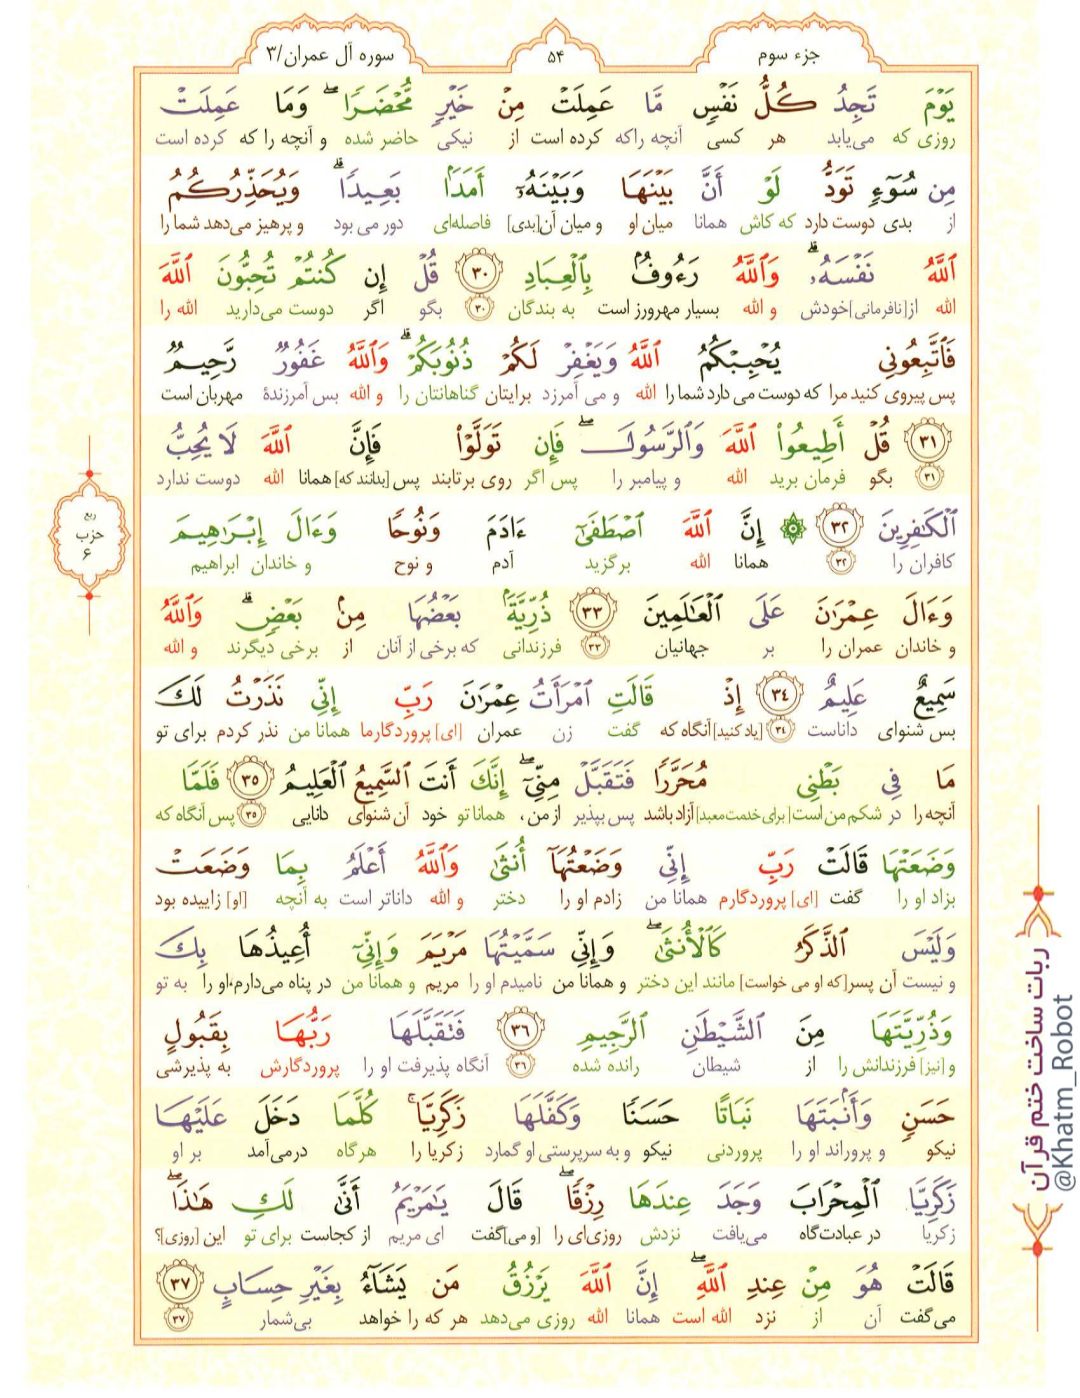 جزء سوم
۵۴
سوره آل عمران/۳
يَوْمَ تَجِدُ كُلُّ نَفْسٍ مَّا عَمِلَتْ مِنْ خَيْرٍ مُّحْضَرًا ۖ وَمَا عَمِلَتْ
روزی که می‌یابد هر کسی آنچه راکه کرده است از نیکی حاضر شده و آنچه را که کرده است
مِن سُوٓءٍ تَوَدُّ لَوْ أَنَّ بَيْنَهَا وَبَيْنَهُۥٓ أَمَدًۢا بَعِيدًا ۗ وَيُحَذِّرُكُمُ
از بدی دوست دارد که کاش همانا میان او و میان آن[بدی] فاصله‌ای دور می بود و پرهیز می‌دهد شما را
ٱللَّهُ نَفْسَهُۥ ۗ وَٱللَّهُ رَءُوفٌۢ بِٱلْعِبَادِ ۳۰ قُلْ إِن كُنتُمْ تُحِبُّونَ ٱللَّهَ
الله از[نافرمانی]خودش و الله بسیار مهرورز است به بندگان ۳۰ بگو اگر دوست می‌دارید الله را
فَٱتَّبِعُونِى يُحْبِبْكُمُ ٱللَّهُ وَيَغْفِرْ لَكُمْ ذُنُوبَكُمْ ۗ وَٱللَّهُ غَفُورٌ رَّحِيمٌ
پس پیروی کنید مرا که دوست می دارد شما را الله و می آمرزد برایتان گناهانتان را و الله بس آمرزندهٔ مهربان است
۳۱ قُلْ أَطِيعُوا۟ ٱللَّهَ وَٱلرَّسُولَ ۖ فَإِن تَوَلَّوْا۟ فَإِنَّ ٱللَّهَ لَا يُحِبُّ
۳۱ بگو فرمان برید الله و پیامبر را پس اگر روی برتابند پس[بدانند که] همانا الله دوست ندارد
ٱلْكَـٰفِرِينَ ۳۲ إِنَّ ٱللَّهَ ٱصْطَفَىٰٓ ءَادَمَ وَنُوحًا وَءَالَ إِبْرَٰهِيمَ
کافران را ۳۲ همانا الله برگزید آدم و نوح و خاندان ابراهیم
ربع
حزب
۶
وَءَالَ عِمْرَٰنَ عَلَى ٱلْعَـٰلَمِينَ ۳۳ ذُرِّيَّةًۢ بَعْضُهَا مِنۢ بَعْضٍ ۗ وَٱللَّهُ
و خاندان عمران را بر جهانیان ۳۳ فرزندانی که برخی از آنان از برخی دیگرند و الله
سَمِيعٌ عَلِيمٌ ۳۴ إِذْ قَالَتِ ٱمْرَأَتُ عِمْرَٰنَ رَبِّ إِنِّى نَذَرْتُ لَكَ
بس شنوای داناست ۳۴ [یاد کنید]آنگاه که گفت زن عمران [ای] پروردگارما همانا من نذر کردم برای تو
مَا فِى بَطْنِى مُحَرَّرًا فَتَقَبَّلْ مِنِّىٓ ۖ إِنَّكَ أَنتَ ٱلسَّمِيعُ ٱلْعَلِيمُ ۳۵ فَلَمَّا
آنچه را در شکم من است[برای خدمت معبد] آزاد باشد پس بپذیر از من، همانا تو خود آن شنوای دانایی ۳۵ پس آنگاه که
وَضَعَتْهَا قَالَتْ رَبِّ إِنِّى وَضَعْتُهَآ أُنثَىٰ وَٱللَّهُ أَعْلَمُ بِمَا وَضَعَتْ
بزاد او را گفت [ای] پروردگارم همانا من زادم او را دختر و الله داناتر است به آنچه [او] زاییده بود
وَلَيْسَ ٱلذَّكَرُ كَٱلْأُنثَىٰ ۖ وَإِنِّى سَمَّيْتُهَا مَرْيَمَ وَإِنِّىٓ أُعِيذُهَا بِكَ
و نیست آن پسر[که او می خواست] مانند این دختر و همانا من نامیدم او را مریم و همانا من در پناه می‌دارم،او را به تو
وَذُرِّيَّتَهَا مِنَ ٱلشَّيْطَـٰنِ ٱلرَّجِيمِ ۳۶ فَتَقَبَّلَهَا رَبُّهَا بِقَبُولٍ
و[نیز] فرزندانش را از شیطان رانده شده ۳۶ آنگاه پذیرفت او را پروردگارش به پذیرشی
حَسَنٍ وَأَنۢبَتَهَا نَبَاتًا حَسَنًا وَكَفَّلَهَا زَكَرِيَّا ۖ كُلَّمَا دَخَلَ عَلَيْهَا
نیکو و پروراند او را پروردنی نیکو و به سرپرستی او گمارد زکریا را هرگاه درمی‌آمد بر او
زَكَرِيَّا ٱلْمِحْرَابَ وَجَدَ عِندَهَا رِزْقًا ۖ قَالَ يَـٰمَرْيَمُ أَنَّىٰ لَكِ هَـٰذَا ۖ
زکریا در عبادت‌گاه می‌یافت نزدش روزی‌ای را [و می]گفت ای مریم از کجاست برای تو این [روزی]؟
قَالَتْ هُوَ مِنْ عِندِ ٱللَّهِ ۖ إِنَّ ٱللَّهَ يَرْزُقُ مَن يَشَآءُ بِغَيْرِ حِسَابٍ ۳۷
می‌گفت آن از نزد الله است همانا الله روزی می‌دهد هر که را خواهد بی‌شمار ۳۷
ربات ساخت ختم قرآن
@Khatm_Robot